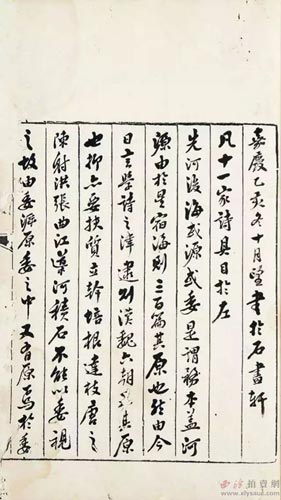 嘉慶乙亥冬十月望書於石畫軒
凡十一家詩具目於左
先河後海或源或委是謂務本蓋河
源由於星宿海則三百篇其原也然由今
日言學詩之津逮則漢魏六朝其原
也抑亦要扶質立幹培根達枝唐之
陳射洪張曲江導河積石不能以委視
之故由委溯原委之中又有原焉於委
西泠拍賣網